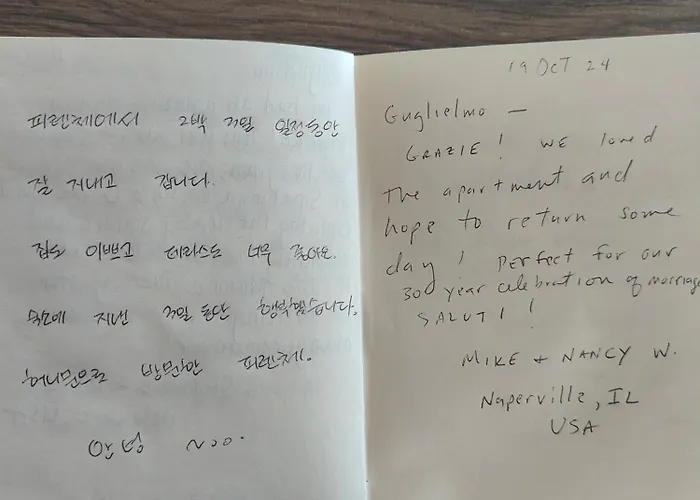 피렌체에서 2박 3일 일정동안
잘 지내고 갑니다.
집도 이쁘고 테라스도 너무 좋아요.
지낸 3일 동안 행복했습니다.
허니문으로 방문한 피렌체.
안녕 ~○○.
19 OCT 24
Guglielmo —
GRAZIE! WE loved
the apartment and
hope to return some
day! Perfect for our
30 year celebration of marriage
SALUTI!
MIKE + NANCY W.
Naperville, IL
USA